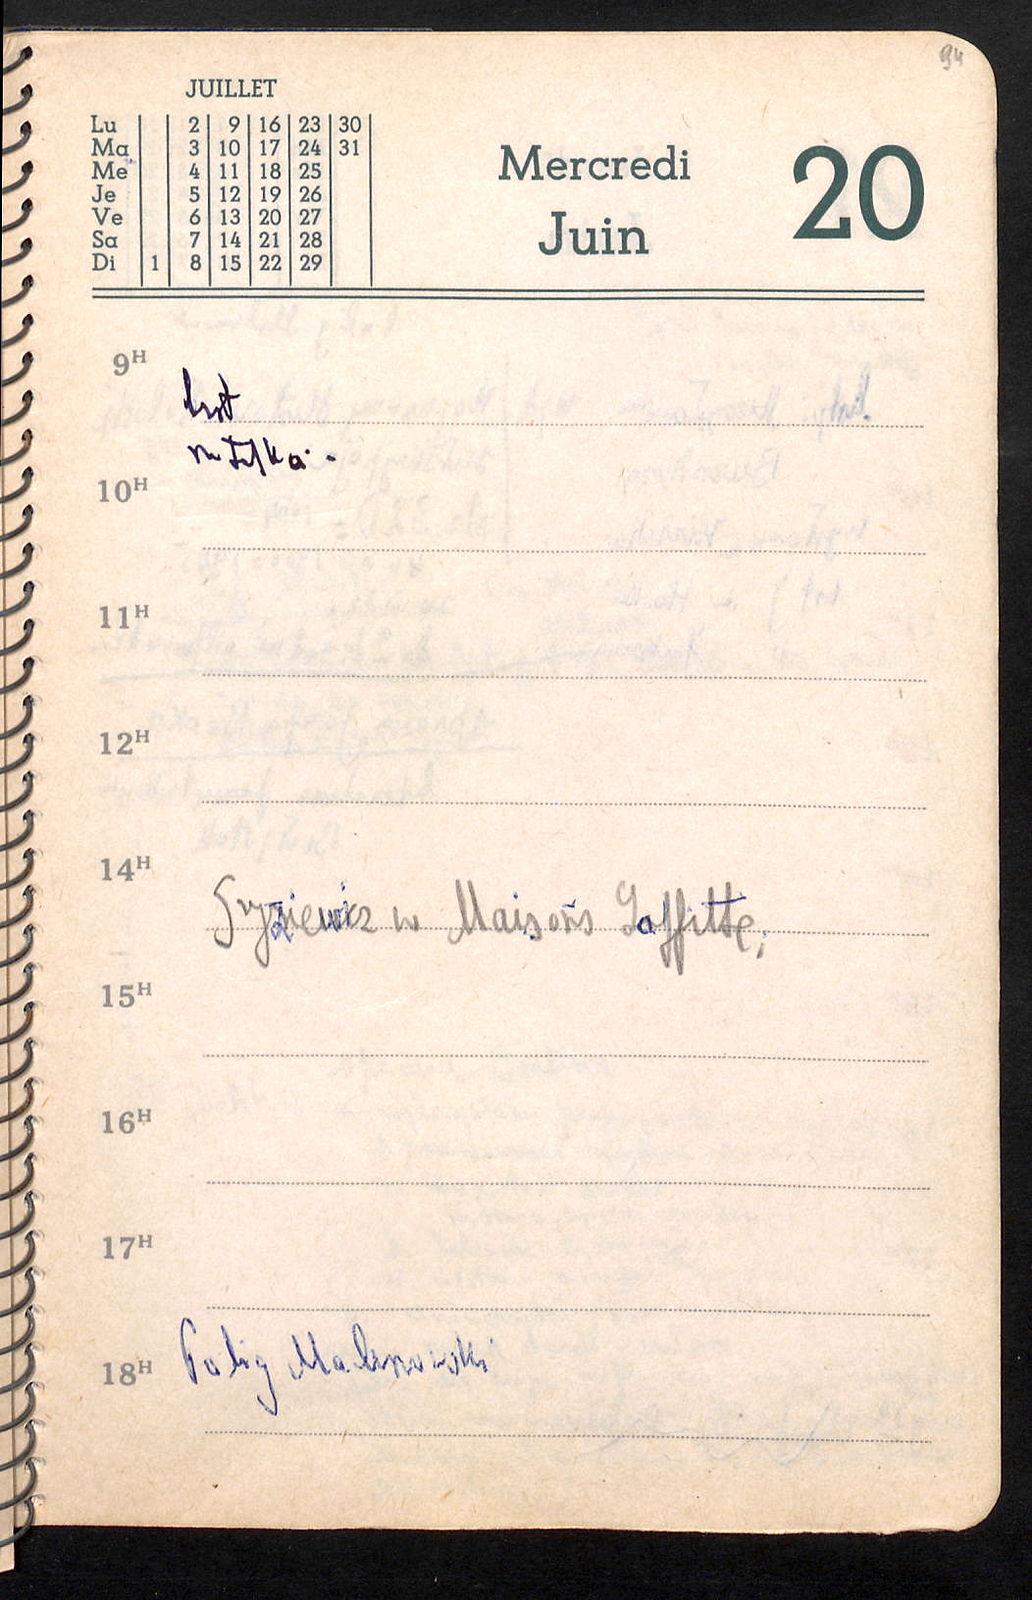 94
JUILLET
Lu 2 9 16 23 30
Ma 3 10 17 24 31
Me 4 11 18 25
Je 5 12 19 26
Ve 6 13 20 27
Sa 7 14 21 28
Di 1 8 15 22 29
Mercredi 20
Juin
9H
list
10H
11H
12H
14H
w Maisons Laffitte;
15H
16H
17H
18H